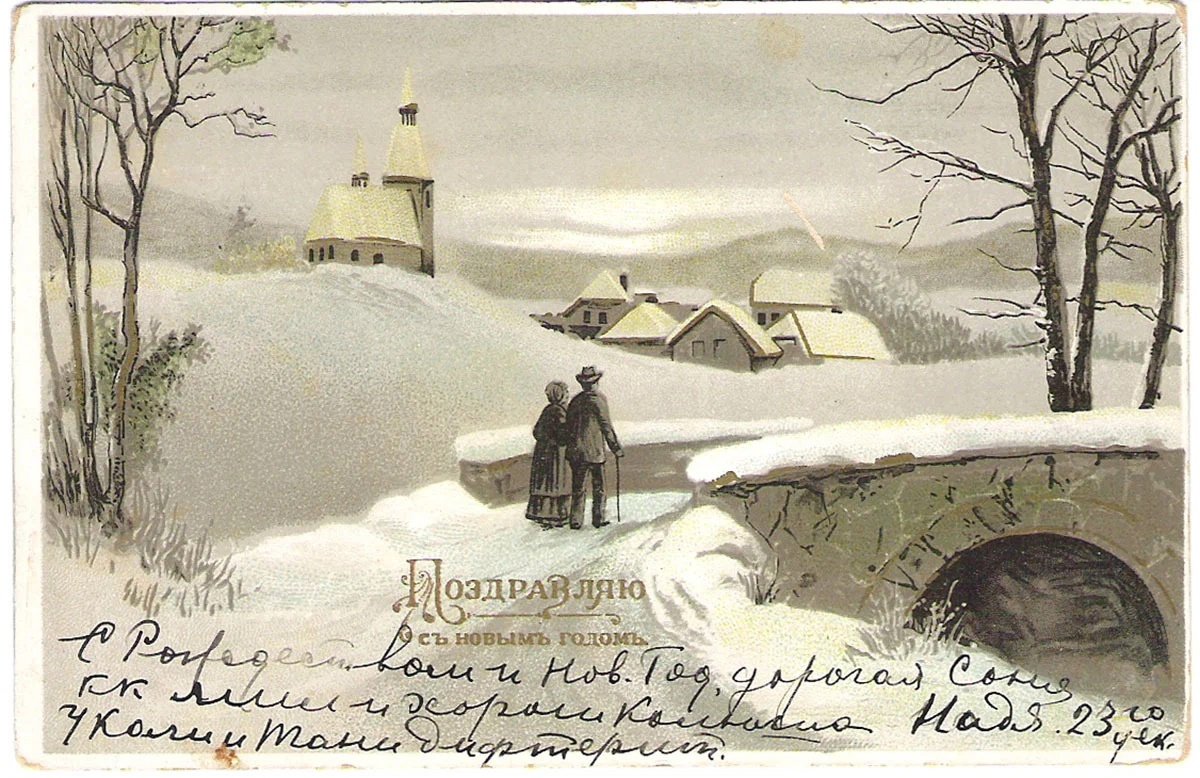 Поздравляю
съ новымъ годомъ.
С Рождеством и Нов. Год, дорогая Соня
и Надя. 23го
У Коли и Тани дифтерит. дек.